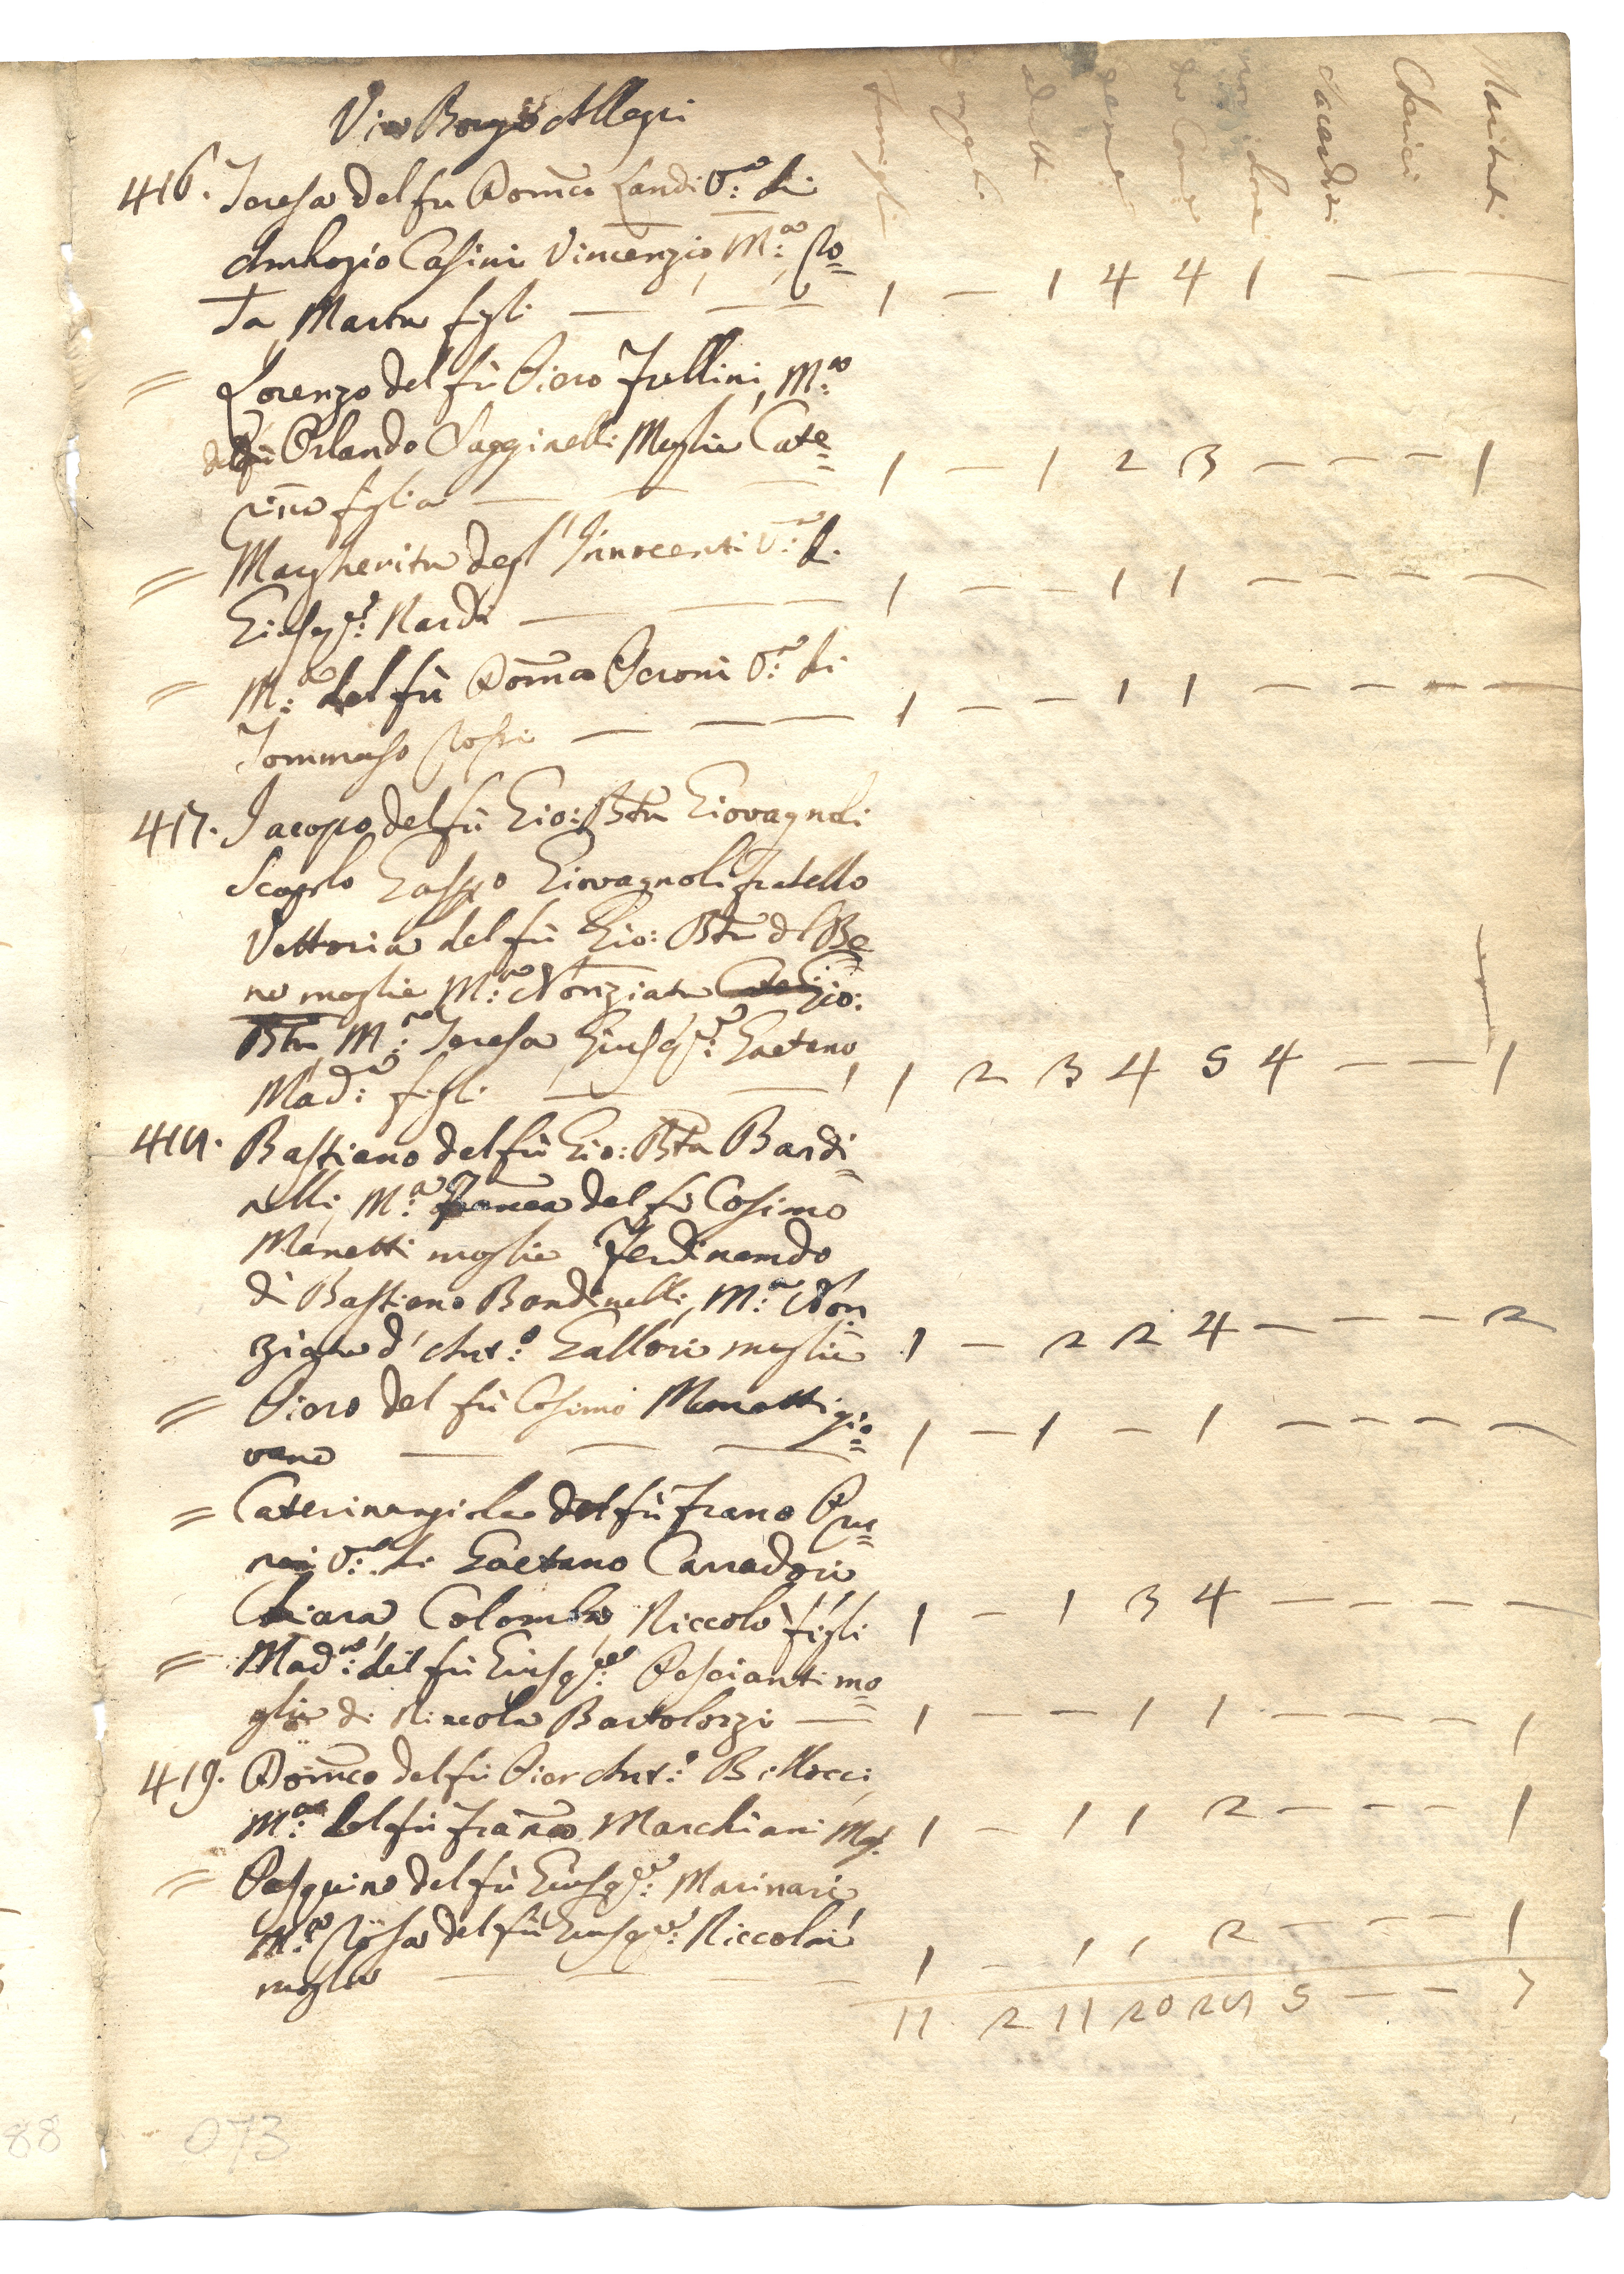 Via Borgo Allegri
famiglie
adulti
femine
da Com
non da
Sacerdoti
Cherici
Maritati
416. Teresa del fu Dom:co Landi V:a di
Ambrogio Casini Vincenzio, M:a Ro=
sa, Marta figli — — — 1 — 1 4 4 1 — — —
= Lorenzo del fù Piero Frullini, M:a
del fù Orlando Sagginelli Moglie Cate=
rina figlia — — — 1 — 1 2 3 — — — 1
= Margherita degl'Innocenti V:a di
Gius:e Nardi — — — 1 — — 1 1 — — — —
= M:a del fù Dom:co Peroni V:a di
Tommaso Rossi — — — 1 — — 1 1 — — — —
417. Jacopo del fù Gio: Bta Giovagnoli
Scapolo Gasp:o Giovagnoli fratello
Vettoria del fù Gio: Bta del Be
ne moglie M:a Nonziata Gio:
Bta M:a Teresa Gius:e Gaetano
Mad:a figli — — 1 2 3 4 5 4 — — 1
418. Bastiano del fù Gio: Bta Bandi=
nelli, M:a del fù Cosimo
Manetti moglie Ferdinando
di Bastiano Bandinelli, M:a Non
ziata d'Ant:o Gallori moglie 1 — 2 2 4 — — — 2
= Piero del fù Cosimo Manetti gio=
vane — — — 1 — 1 — 1 — — — —
= Caterinangiola del fù Fran:o
V:a di Gaetano Carradori
Chiara, Colomba, Niccolò figli 1 — 1 3 4 — — — —
= Mad:a del fù Gius:e Pascianti mo=
glie di Niccola Bartolozzi — 1 — — 1 1 — — — 1
419. Dom:co del fù Pier Ant:o Billocci,
M:a del fù Fran:co Marchiani Mog. 1 — 1 1 2 — — — 1
= Pasquino del fù Gius:e Marinari
M:a Rosa del fù Gius:e Niccolai
moglie — — — 1 — 1 1 2 — — — 1
11 2 11 20 28 5 — — 7
88
073